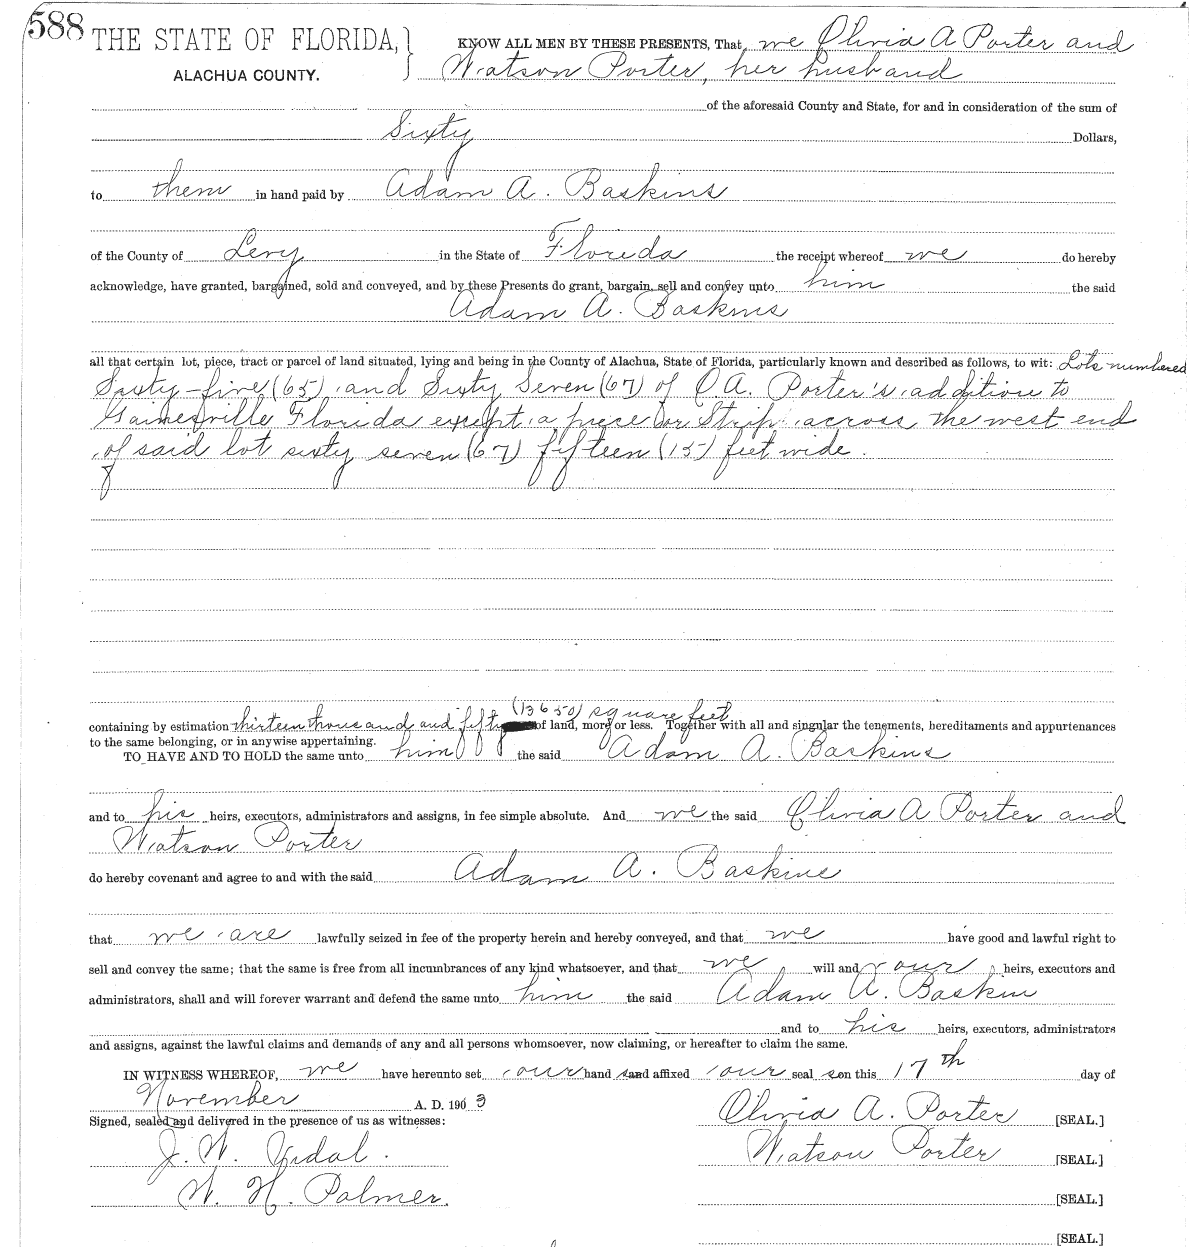 588
THE STATE OF FLORIDA,
ALACHUA COUNTY.
KNOW ALL MEN BY THESE PRESENTS, That we Olivia A Porter and
Watson Porter, her husband
of the aforesaid County and State, for and in consideration of the sum of
Sixty Dollars,
to them in hand paid by Adam A. Baskins
of the County of Levy in the State of Florida the receipt whereof we do hereby
acknowledge, have granted, bargained, sold and conveyed, and by these Presents do grant, bargain, sell and convey unto him the said
Adam A. Baskins
all that certain lot, piece, tract or parcel of land situated, lying and being in the County of Alachua, State of Florida, particularly known and described as follows, to wit: Lots numbered
Sixty-five (65) and Sixty Seven (67) of O.A. Porter's addition to
Gainesville Florida except a piece or Strip across the west end
of said lot sixty seven (67) fifteen (15) feet wide.
(13650) square feet
containing by estimation thirteen thousand and fifty of land, more or less. Together with all and singular the tenements, hereditaments and appurtenances
to the same belonging, or in anywise appertaining.
TO HAVE AND TO HOLD the same unto him the said Adam A. Baskins
and to his heirs, executors, administrators and assigns, in fee simple absolute. And we the said Olivia A Porter and
Watson Porter
do hereby covenant and agree to and with the said Adam A. Baskins
that we are lawfully seized in fee of the property herein and hereby conveyed, and that we have good and lawful right to
sell and convey the same; that the same is free from all incumbrances of any kind whatsoever, and that we will and our heirs, executors and
administrators, shall and will forever warrant and defend the same unto him the said Adam A. Baskin
and to his heirs, executors, administrators
and assigns, against the lawful claims and demands of any and all persons whomsoever, now claiming, or hereafter to claim the same.
IN WITNESS WHEREOF, we have hereunto set our hand s and affixed our seal s on this 17th day of
November A. D. 1903
Signed, sealed and delivered in the presence of us as witnesses:
Olivia A. Porter [SEAL.]
J. W. Vidal.
Watson Porter [SEAL.]
W. H. Palmer.
[SEAL.]
[SEAL.]